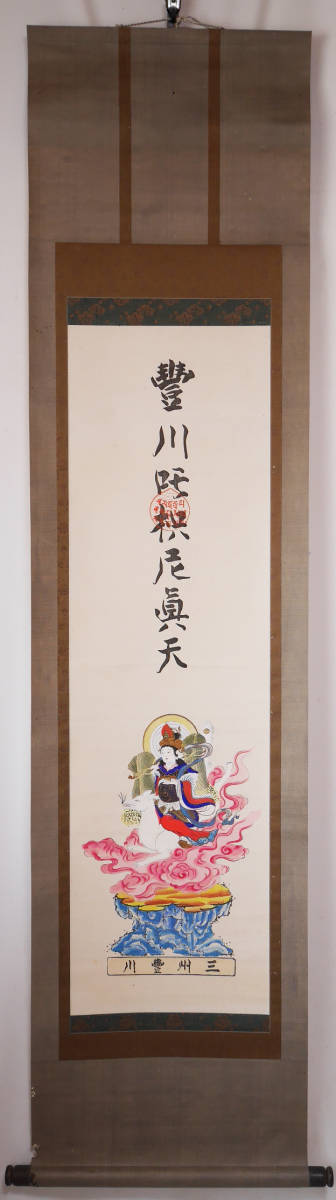 豐川吒枳尼眞天
三州豐川